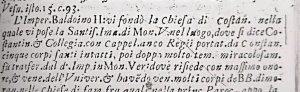 Vesu.isto.15.c.93.
L'Imper. Baldoino II. vi fondò la Chiesa di Costan. nella
quale vi pose la Santiss.Ima. di Mon.V. nel luogo, dove si dice Co-
stantin. & Collegia. con Cappel. anco Regij portat. da Constan.
cinque corpi santi intatti, poi doppo molto tem. miracolosam.
trasfer. dal d. Imp. in Mon. Ver: dove si risiede con veneratione,
& vene. dell'Univer. & havedo ven. molti corpi de BB. dimo-